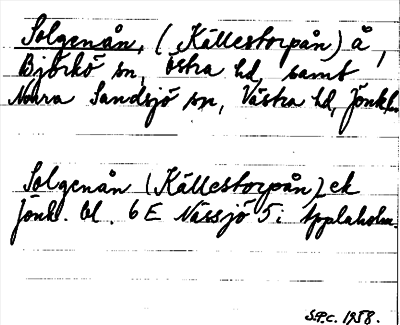 Solgenån, (Källestorpån) å,
Björkö sn, Östra hd, samt
Norra Sandsjö sn, Västra hd, Jönk.l.
Solgenån (Källestorpån) ek
Jönk. bl. 6 E Nässjö 5 i Äpplaholm.
S.P.C. 1958.